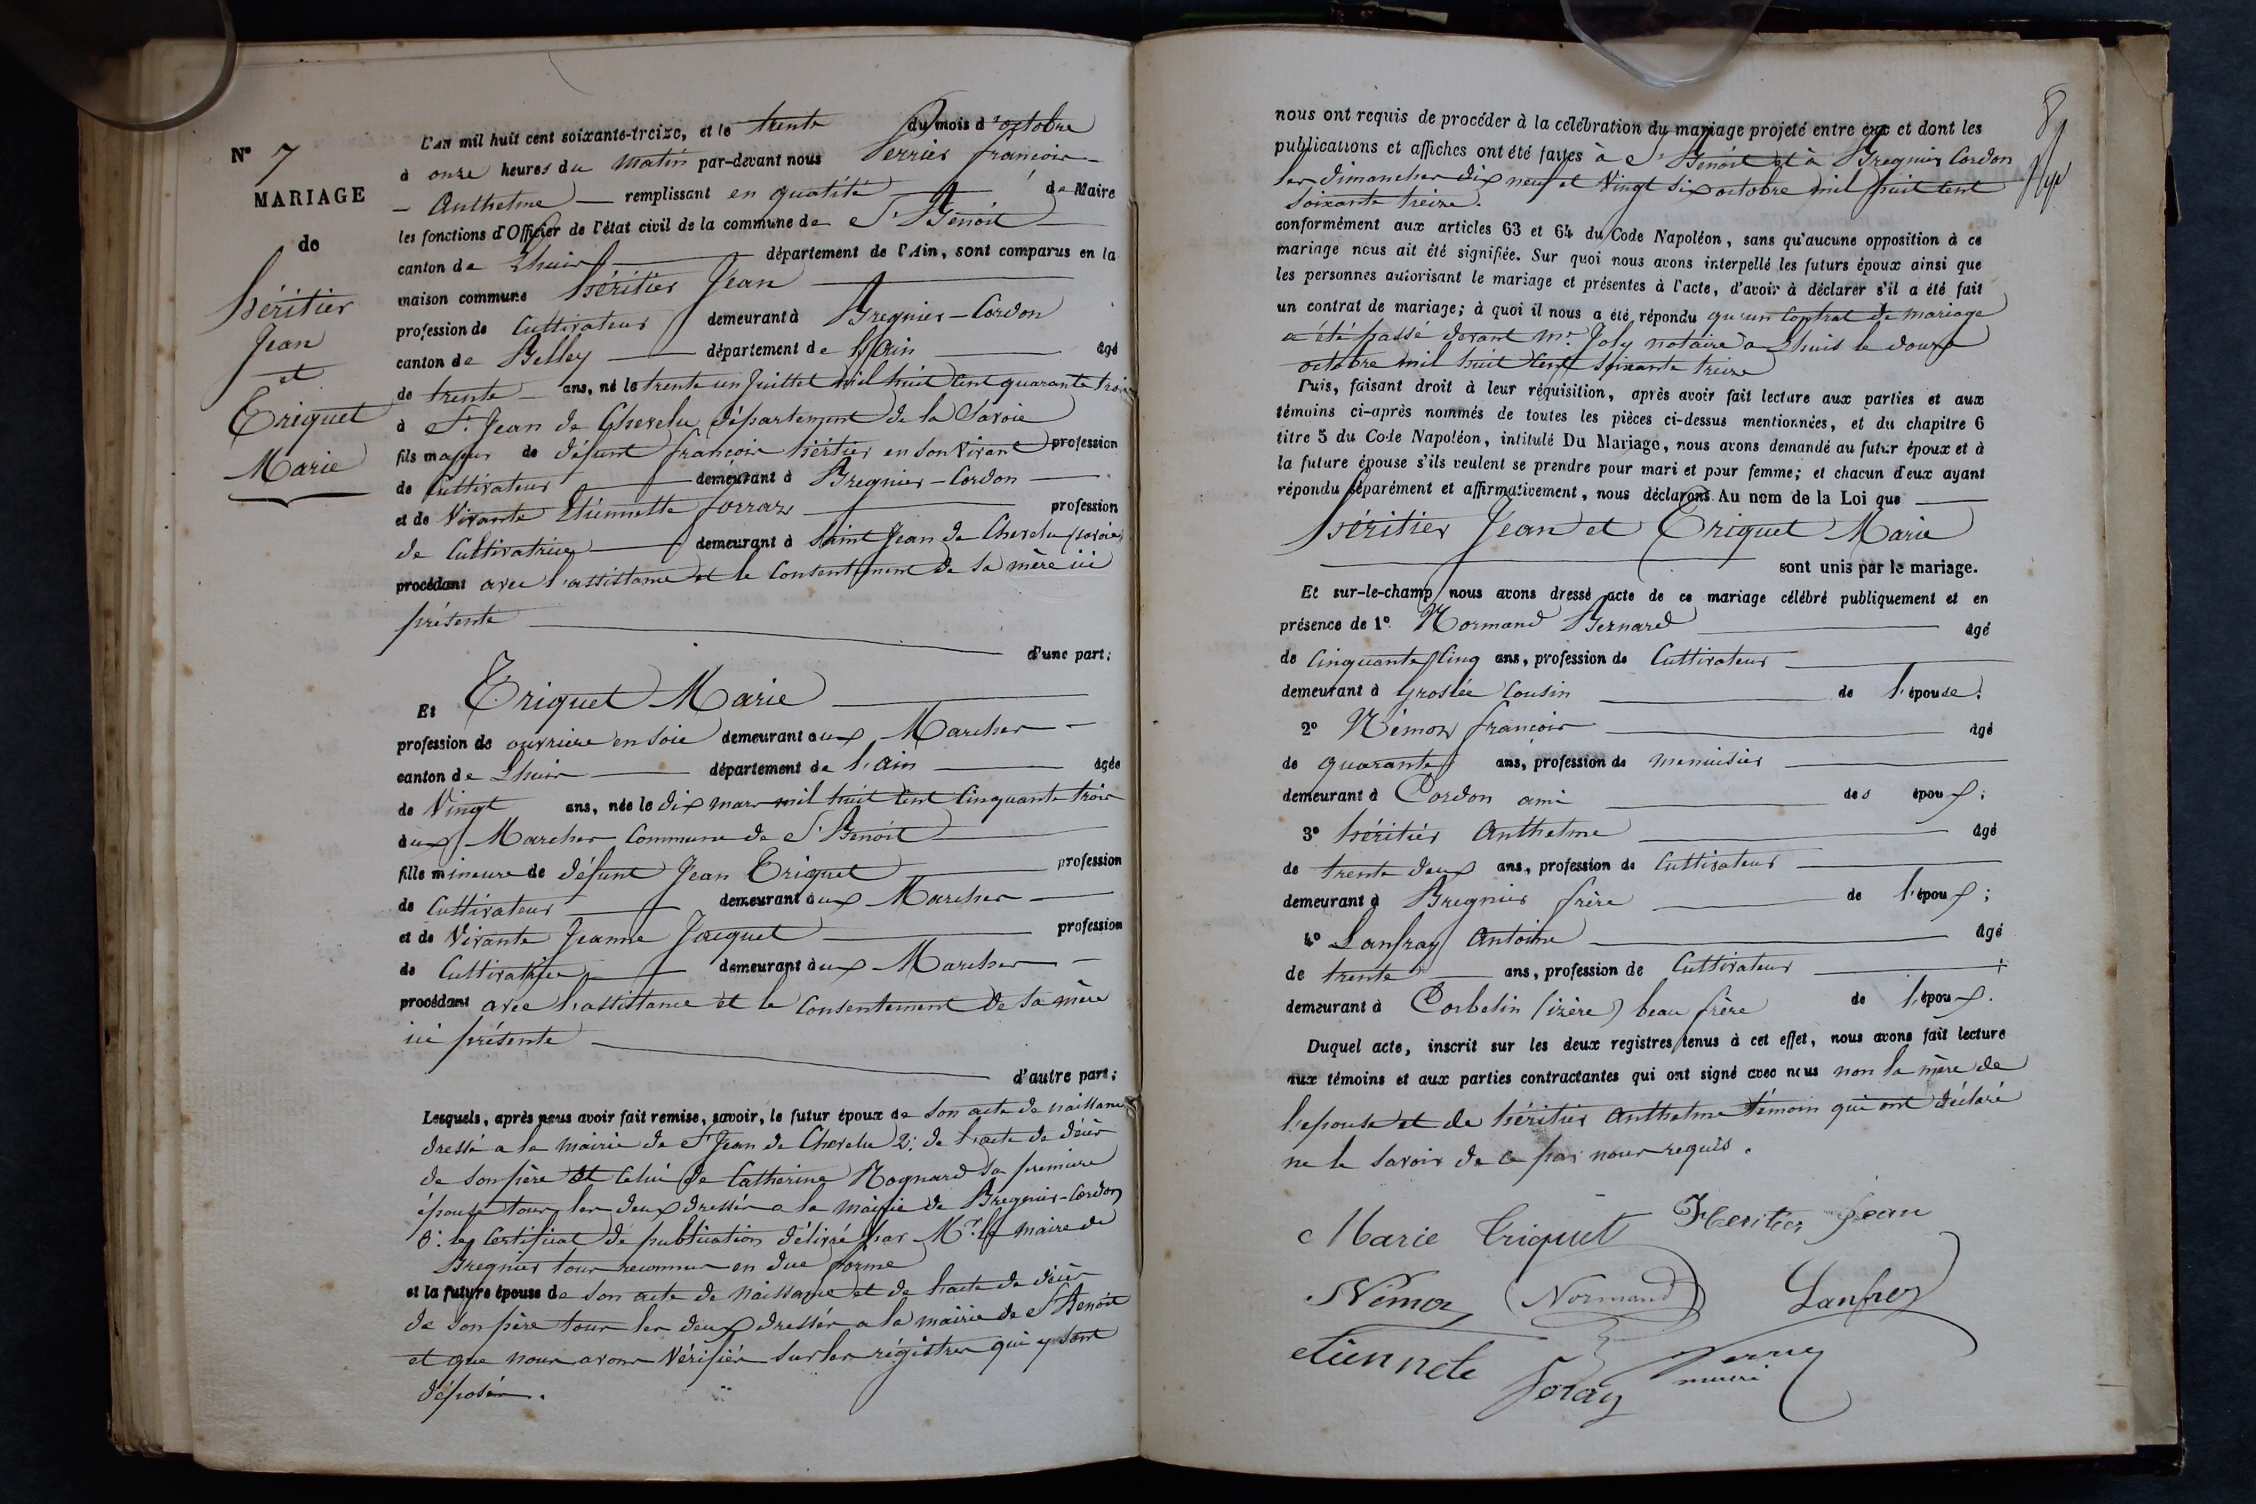 N° 7
MARIAGE
de
héritier
Jean
et
Triquet
Marie
L'AN mil huit cent soixante-treize, et le trente du mois d'octobre
à onze heures du matin par-devant nous Perrier françois
- Anthelme - remplissant en qualité de Maire
les fonctions d'Officier de l'état civil de la commune de St Benoit
canton de Lhuis département de l'Ain, sont comparus en la
maison commune héritier Jean
profession de Cultivateur demeurant à Bregnier-Cordon
canton de Belley département de l'Ain âgé
de trente ans, né le trente un Juillet mil huit cent quarante trois
à St Jean de Chevelu département de la Savoie
fils majeur de défunt françois héritier en son vivant profession
de Cultivateur demeurant à Bregnier-Cordon
et de Vivante Etiennette forraz profession
de Cultivatrice demeurant à Saint Jean de Chevelu (savoie)
procédant avec l'assistance et le consentement de sa mère ici
présente
d'une part;
Et Triquet Marie
profession de ouvrière en soie demeurant aux Marches
canton de Lhuis département de l'ain âgée
de Vingt ans, née le dix mars mil huit cent cinquante trois
aux Marches Commune de St Benoit
fille mineure de défunt Jean Triquet profession
de Cultivateur demeurant aux Marches
et de Vivante Jeanne Jacquet profession
de Cultivatrice demeurant aux Marches
procédant avec l'assistance et le consentement de sa mère
ici présente
d'autre part;
Lesquels, après nous avoir fait remise, savoir, le futur époux de son acte de naissance
dressé a la mairie de St Jean de Chevelu 2° de l'acte de décès
de son père et celui de Catherine Rognard sa première
épouse tous les deux dressés a la mairie de Bregnier-Cordon
3° le Certificat de publication délivré par Mr le maire de
Bregnier tous reconnus en due forme
et la future épouse de son acte de naissance et de l'acte de décès
de son père tous les deux dressés a la mairie de St Benoit
et que nous avons vérifiés sur les régistres qui y sont
déposés.
8
nous ont requis de procéder à la célébration du mariage projeté entre eux et dont les
publications et affiches ont été faites à St Benoit et à Bregnier Cordon
les dimanches dix neuf et Vingt six octobre mil huit cent
soixante treize.
conformément aux articles 63 et 64 du Code Napoléon, sans qu'aucune opposition à ce
mariage nous ait été signifiée. Sur quoi nous avons interpellé les futurs époux ainsi que
les personnes autorisant le mariage et présentes à l'acte, d'avoir à déclarer s'il a été fait
un contrat de mariage; à quoi il nous a été répondu qu'un contrat de mariage
a été passé devant mr Joly notaire a Lhuis le douze
octobre mil huit cent soixante treize
Puis, faisant droit à leur réquisition, après avoir fait lecture aux parties et aux
témoins ci-après nommés de toutes les pièces ci-dessus mentionnées, et du chapitre 6
titre 5 du Code Napoléon, intitulé Du Mariage, nous avons demandé au futur époux et à
la future épouse s'ils veulent se prendre pour mari et pour femme; et chacun d'eux ayant
répondu séparément et affirmativement, nous déclarons Au nom de la Loi que
héritier Jean et Triquet Marie
sont unis par le mariage.
Et sur-le-champ nous avons dressé acte de ce mariage célébré publiquement et en
présence de 1° Normand Bernard âgé
de Cinquante cinq ans, profession de Cultivateur
demeurant à Groslée Cousin de l'épouse.
2° Némoz françois âgé
de quarante ans, profession de menuisier
demeurant à Cordon ami des époux;
3° héritier Anthelme âgé
de trente deux ans, profession de Cultivateur
demeurant à Bregnier frère de l'époux;
4° Lanfray Antoine âgé
de trente ans, profession de Cultivateur
demeurant à Corbelin (isère) beau frère de l'époux.
Duquel acte, inscrit sur les deux registres tenus à cet effet, nous avons fait lecture
aux témoins et aux parties contractantes qui ont signé avec nous non la mère de
l'epouse et de héritier Anthelme témoin qui ont déclaré
ne le savoir de ce par nous requis.
Marie Triquet Heritier Jean
Némoz Normand Lanfrey
etiennete
foray
maire